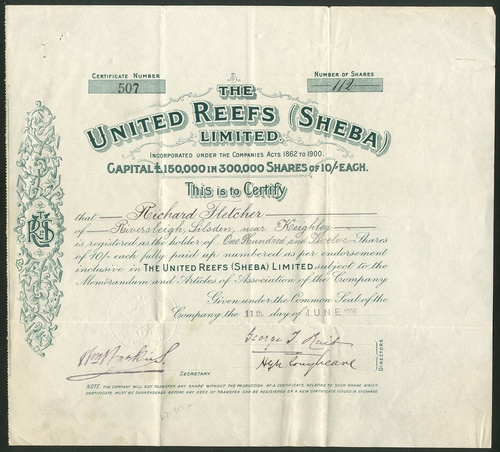 CERTIFICATE NUMBER
507
NUMBER OF SHARES
112
THE
UNITED REEFS (SHEBA)
LIMITED.
INCORPORATED UNDER THE COMPANIES ACTS 1862 TO 1900.
CAPITAL £150,000 IN 300,000 SHARES OF 10/- EACH.
This is to Certify
that Richard Fletcher
of Riversleigh, Silsden, near Keighley
is registered as the holder of One Hundred and Twelve Shares
of 10/- each fully paid up numbered as per endorsement
inclusive in THE UNITED REEFS (SHEBA) LIMITED subject to the
Memorandum and Articles of Association of the Company
Given under the Common Seal of the
Company the 11th day of JUNE
George
SECRETARY
DIRECTORS
NOTE. THE COMPANY WILL NOT TRANSFER ANY SHARE WITHOUT THE PRODUCTION OF A CERTIFICATE RELATING TO SUCH SHARE WHICH
CERTIFICATE MUST BE SURRENDERED BEFORE ANY DEED OF TRANSFER CAN BE REGISTERED OR A NEW CERTIFICATE ISSUED IN EXCHANGE.